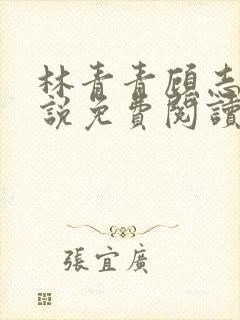 林青青顾志
說免費閱讀
張宜廣